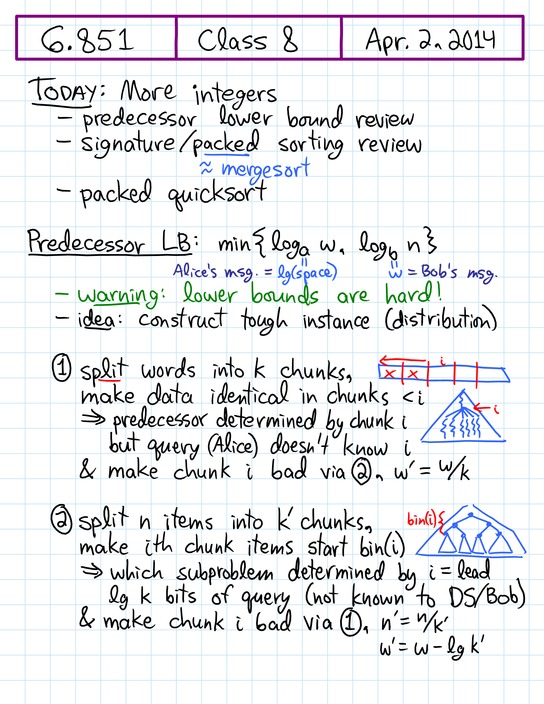 6.851 Class 8 Apr. 2, 2014
TODAY: More integers
- predecessor lower bound review
- signature/packed sorting review
≈ mergesort
- packed quicksort
Predecessor LB: min{log_a w, log_b n}
Alice's msg. = lg(space) w = Bob's msg.
- warning: lower bounds are hard!
- idea: construct tough instance (distribution)
① split words into k chunks,
make data identical in chunks <i
⇒ predecessor determined by chunk i
but query (Alice) doesn't know i
& make chunk i bad via ②, w' = w/k
i
x x
i
② split n items into k' chunks,
make ith chunk items start bin(i)
⇒ which subproblem determined by i = lead
lg k bits of query (not known to DS/Bob)
& make chunk i bad via ①, n' = n/k'
w' = w - lg k'
bin(i){